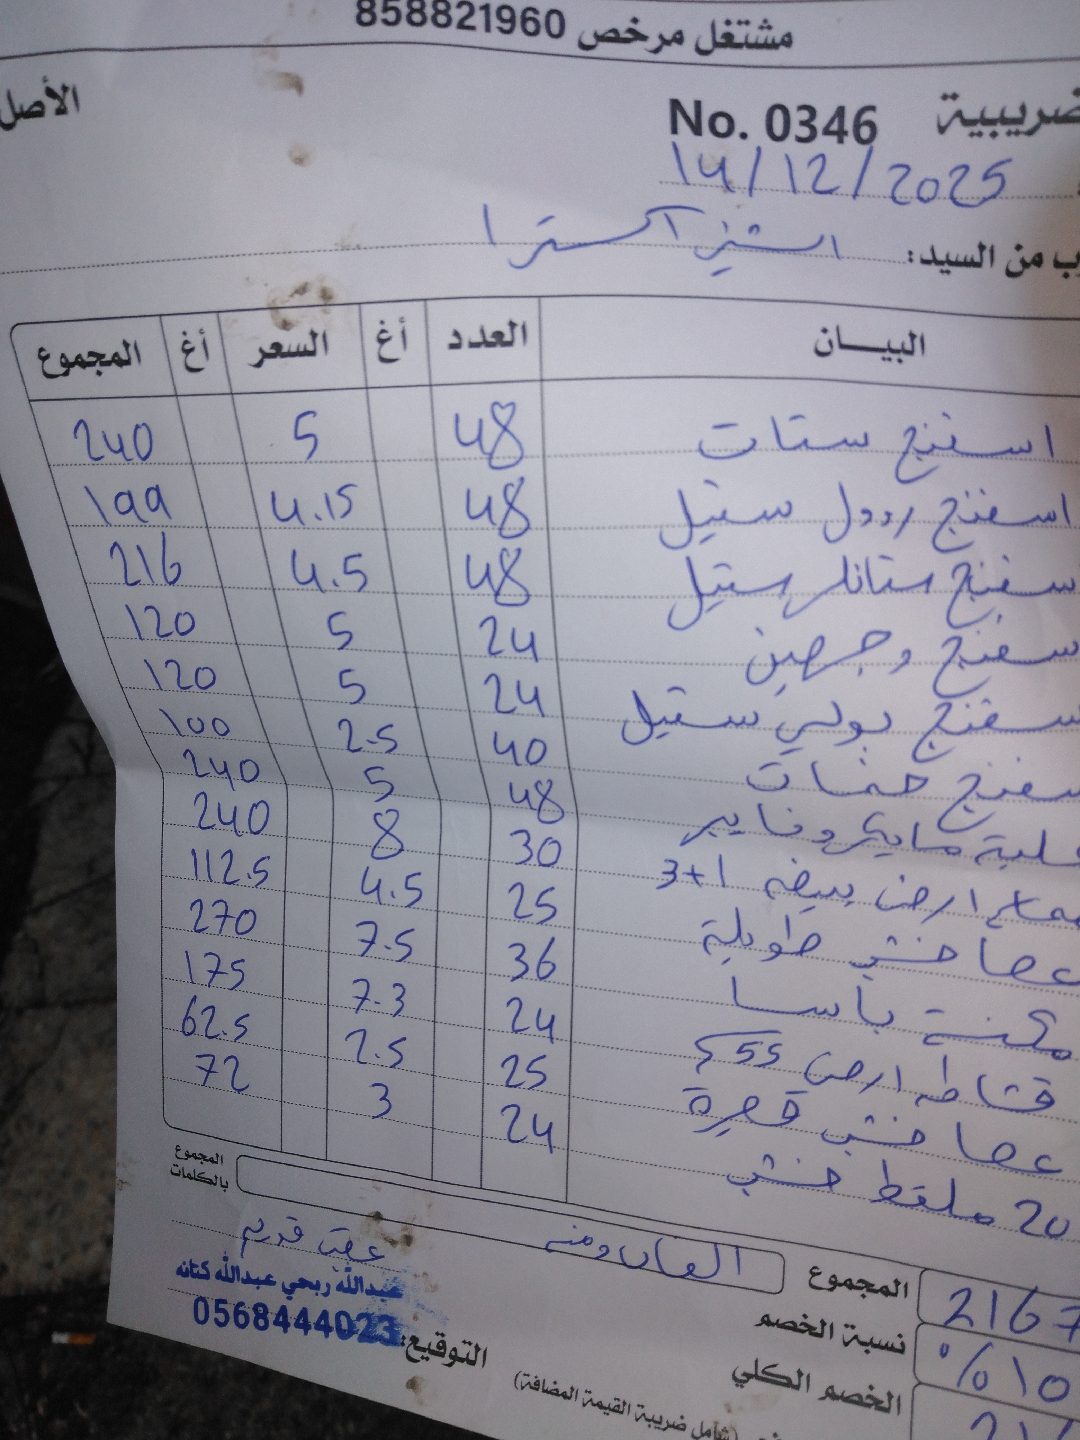 مشتغل مرخص 858821960
ضريبية No. 0346 الأصل
14/12/2025
ب من السيد: اكسترا
البيـــان العدد أغ السعر أغ المجموع
اسفنج ستات 48 5 240
اسفنج رودل ستيل 48 4.15 199
سفنج ستانلس ستيل 48 4.5 216
سفنج وجهين 24 5 120
سفنج بولي ستيل 24 5 120
سفنج حمات 40 2.5 100
علبة مايكروفايبر 48 5 240
ارض بيضه 3+1 30 8 240
عصا خشب طويلة 25 4.5 112.5
مكنسة باسا 36 7.5 270
قشاطه ارض 55 24 7.3 175
عصا خشب قصيرة 25 2.5 62.5
20 ملقط خشب 24 3 72
المجموع بالكلمات
المجموع 2167
الفان ومئه
نسبة الخصم %10
الخصم الكلي
عبدالله ربحي عبدالله كتانه
0568444023
التوقيع:
(شامل ضريبة القيمة المضافة)